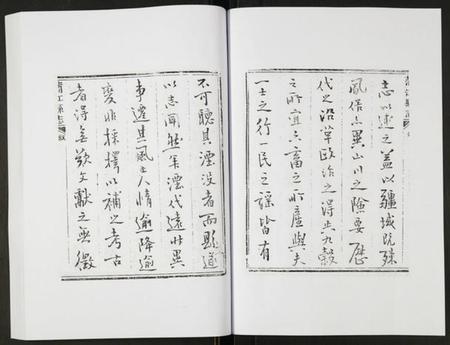 志以述之蓋以疆域既殊
風俗亦異山川之險要歷
代之沿革政治之得失九穀
之所宜六畜之所産與夫
一士之行一民之謠皆有
不可聽其湮沒者而縣遂
以志聞然年湮代遠時異
事遷其風土人情逾降逾
變非採擇以補之考古
者得無歎文獻之無徵